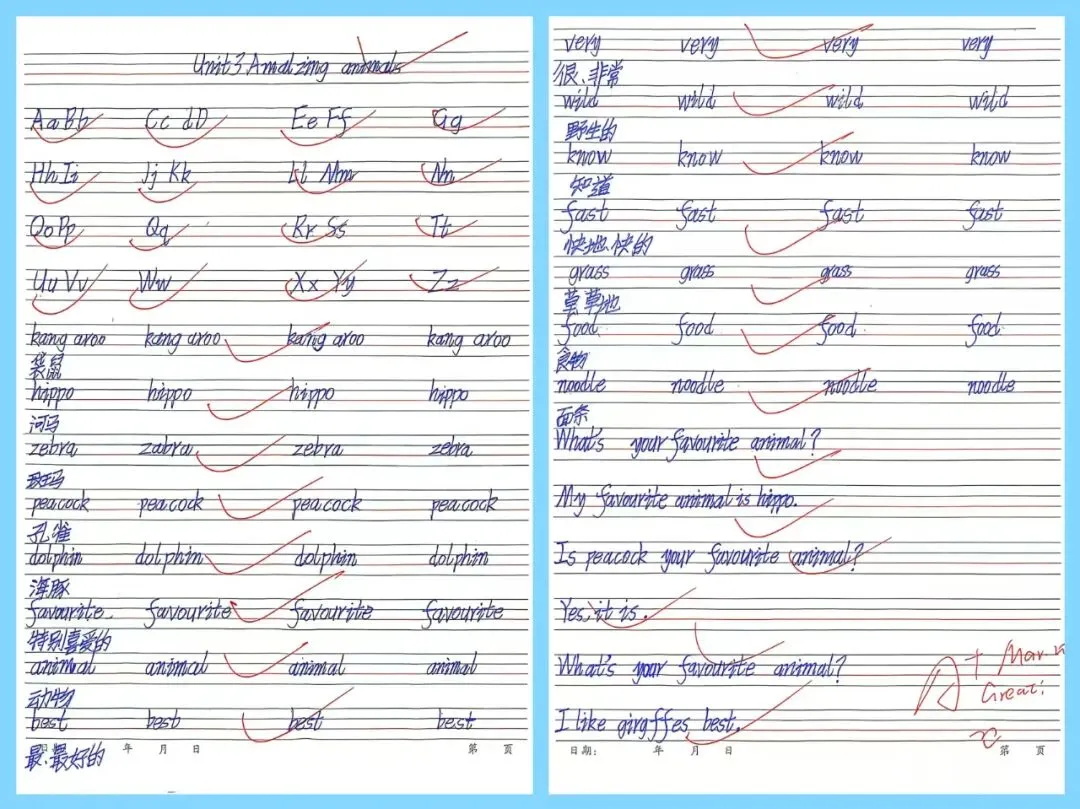 Unit3 Amatzing animals
Aa Bb Cc dD Ee Ff Gg
Hh Ii Jj Kk Ll Mm Nn
Oo Pp Qq Rr Ss Tt
Uu Vv Ww Xx Yy Zz
kang aroo kang aroo kang aroo kang aroo
袋鼠
hippo hippo hippo hippo
河马
zebra zabra zebra zebra
斑马
peacock peacock peacock peacock
孔雀
dolphin dolphin dolphin dolphin
海豚
favourite favourite favourite favourite
特别喜爱的
animal animal animal animal
动物
best best best best
年 月 日 第 页
最、最好的
very very very very
很、非常
wild wild wild wild
野生的
know know know know
知道
fast fast fast fast
快地、快的
grass grass grass grass
草、草地
food food food food
食物
noodle noodle noodle noodle
面条
What's your favourite animal?
My favourite animal is hippo.
Is peacock your favourite animal?
Yes, it is.
What's your favourite animal?
A+ Mark
Great!
I like girgffes best.
日期: 年 月 日 第 页